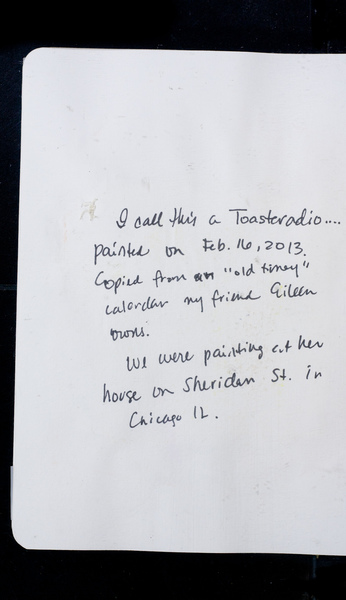 I call this a Toasteradio....
painted on Feb. 16, 2013.
Copied from an "old timey"
calendar my friend Eileen
owns.
We were painting at her
house on Sheridan St. in
Chicago IL.